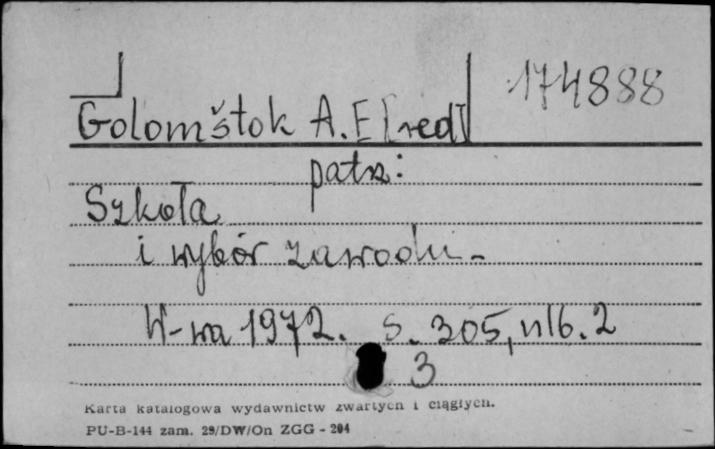 174888
Golomštok A. E [red]
patrz:
Szkoła
i wybór zawodu.-
W-wa 1972. s. 305, nlb. 2
3
Karta katalogowa wydawnictw zwartych i ciągłych.
PU-B-144 zam. 29/DW/On ZGG - 204